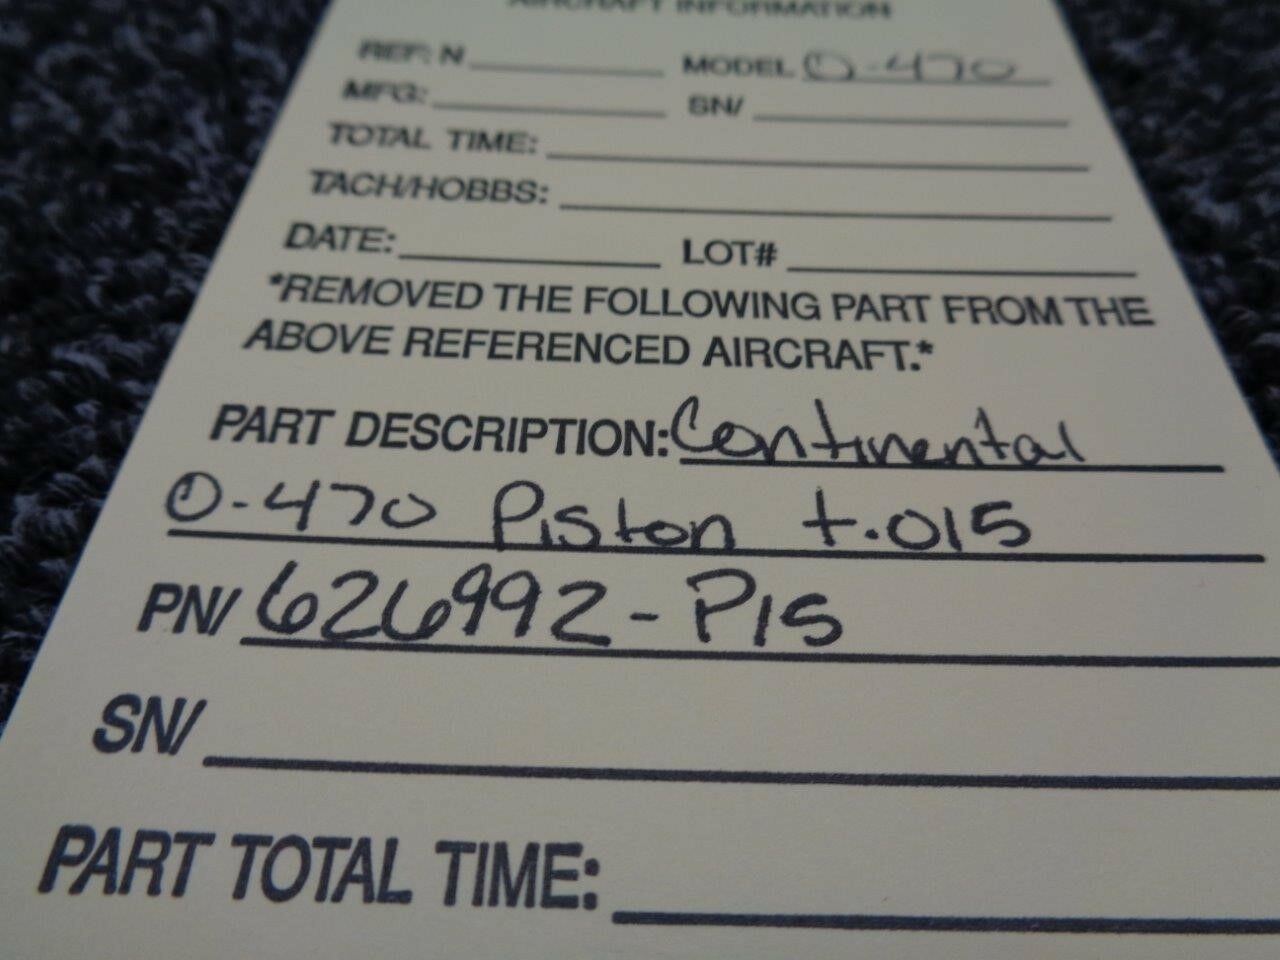 AIRCRAFT INFORMATION
REF: N MODEL O-470
MFG: SN/
TOTAL TIME:
TACH/HOBBS:
DATE: LOT#
*REMOVED THE FOLLOWING PART FROM THE
ABOVE REFERENCED AIRCRAFT.*
PART DESCRIPTION: Continental
O-470 Piston +.015
PN/ 626992-P15
SN/
PART TOTAL TIME: